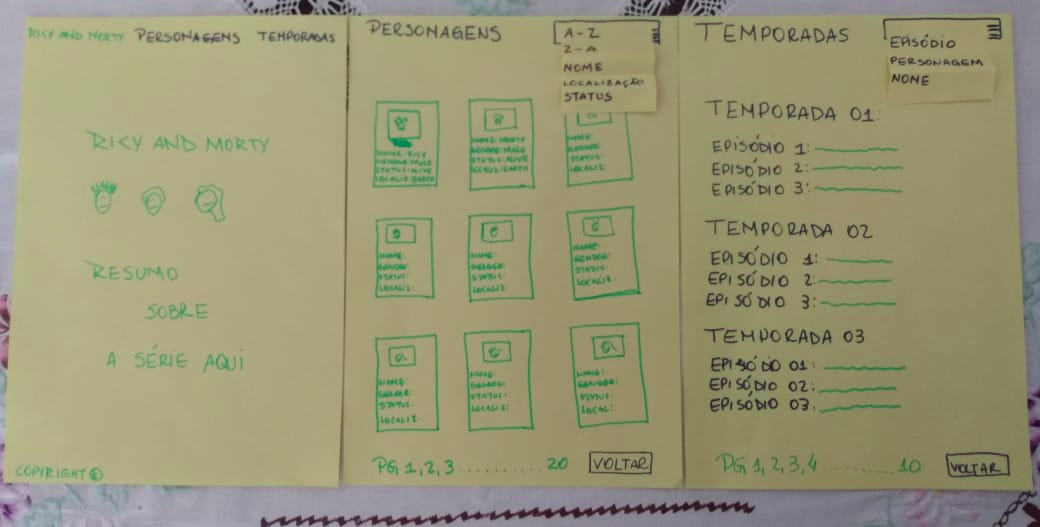 RICY AND MORTY PERSONAGENS TEMPORADAS
RICY AND MORTY
RESUMO
SOBRE
A SÉRIE AQUI
COPYRIGHT ©
PERSONAGENS
A - Z
Z - A
NOME
LOCALIZAÇÃO
STATUS
NAME: RICY
GENDER: MALE
STATUS: ALIVE
LOCALIZ: EARTH
NAME: MORTY
GENDER: MALE
STATUS: ALIVE
LOCALIZ: EARTH
NAME:
GENDER
STATUS:
LOCALIZ:
NAME:
GENDER:
STATUS:
LOCALIZ:
NAME:
GENDER:
STATUS:
LOCALIZ:
NAME:
GENDER:
STATUS:
LOCALIZ:
NAME:
GENDER
STATUS:
LOCALIZ:
NAME:
GENDER:
STATUS:
LOCALIZ:
NAME:
GENDER:
STATUS:
LOCAL:
PG 1, 2, 3 .......... 20 VOLTAR
TEMPORADAS
EPISÓDIO
PERSONAGEM
NOME
TEMPORADA 01:
EPISÓDIO 1:
EPISÓDIO 2:
EPISÓDIO 3:
TEMPORADA 02
EPISÓDIO 1:
EPISÓDIO 2:
EPISÓDIO 3:
TEMPORADA 03
EPISÓDIO 01:
EPISÓDIO 02:
EPISÓDIO 03:
PG 1, 2, 3, 4 .......... 10 VOLTAR